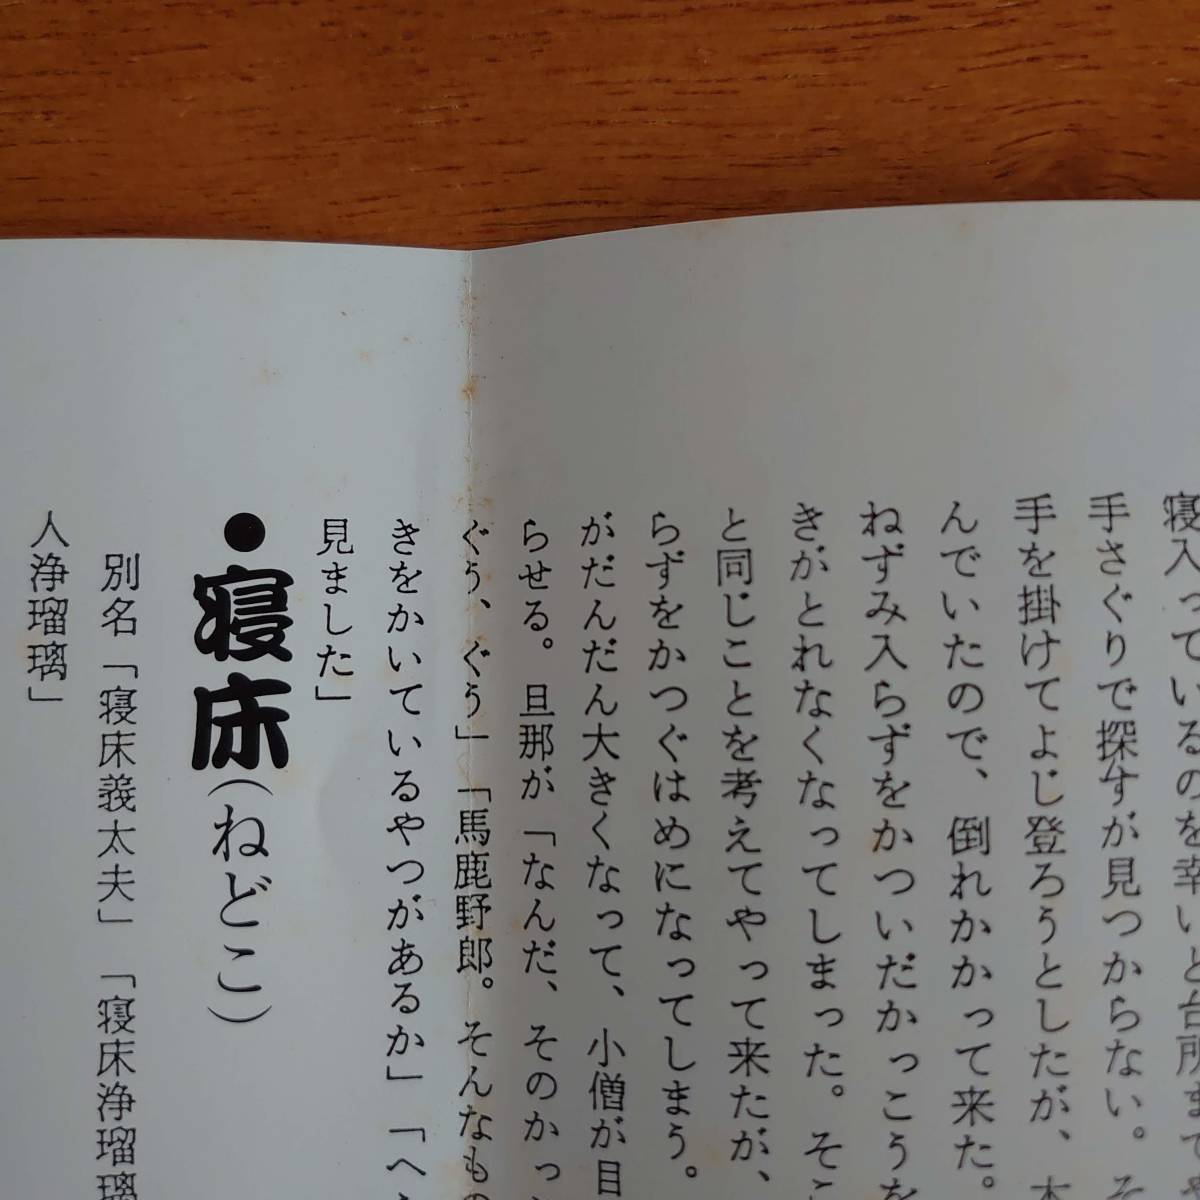 寝入っているのを幸いと台所まで
手さぐりで探すが見つからない。そ
手を掛けてよじ登ろうとしたが、
んでいたので、倒れかかって来た。
ねずみ入らずをかついだかっこうを
きがとれなくなってしまった。そこ
と同じことを考えてやって来たが、
らずをかつぐはめになってしまう。
がだんだん大きくなって、小僧が目
らせる。旦那が「なんだ、そのかっ
ぐう、ぐう」「馬鹿野郎。そんなもの
きをかいているやつがあるか」「へ
見ました」
●寝床(ねどこ)
別名「寝床義太夫」「寝床浄瑠璃
人浄瑠璃」